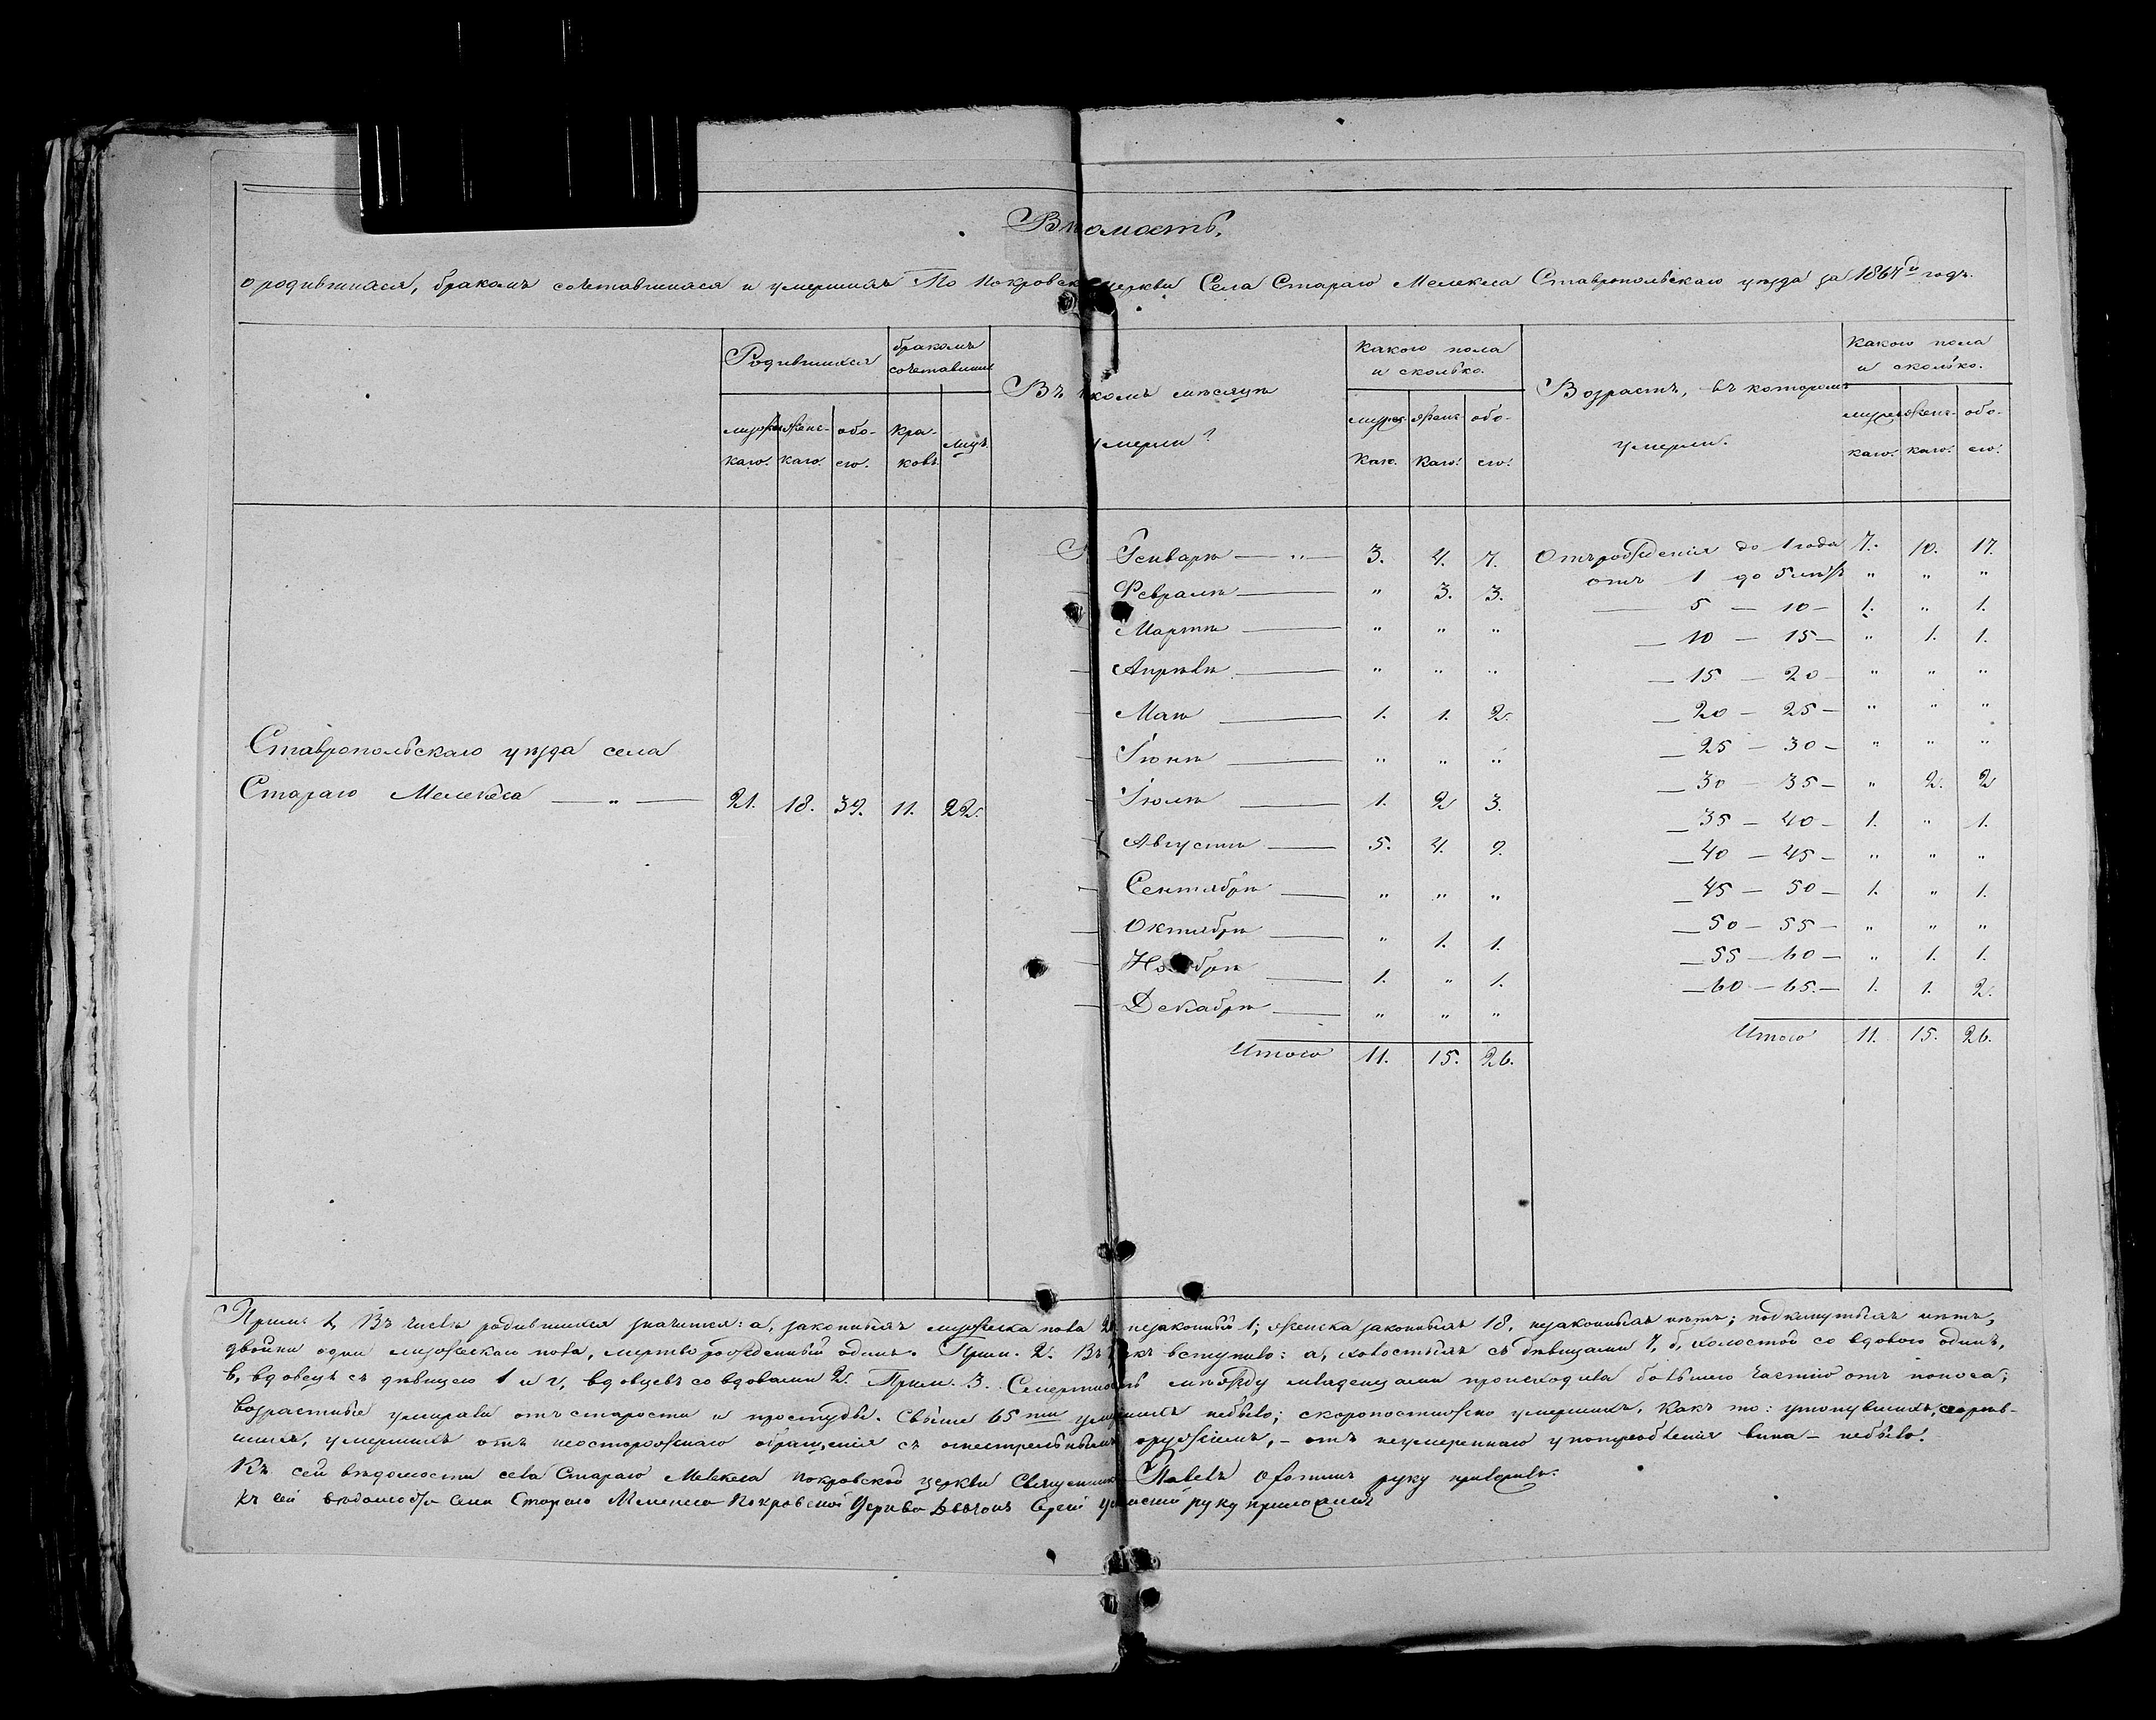 Вѣдомость,
о родившихся, бракомъ сочетавшихся и умершихъ По Покровской церкви Села Стараго Мелекеса Ставропольскаго уѣзда за 1864й годъ.
Родившихся
мужескаго. женскаго. обоего.
бракомъ сочетавшихся
браковъ лицъ
Въ какомъ мѣсяцѣ умерли?
Какого пола и сколько.
мужескаго. женскаго. обоего.
Возрастъ, въ которомъ умерли.
Какого пола и сколько.
мужескаго. женскаго. обоего.
Ставропольскаго уѣзда села
Стараго Мелекеса — „ — 21. 18. 39. 11. 22.
Генварѣ — „ — 3. 4. 7.
Февралѣ — „ 3. 3.
Мартѣ — „ „ „
Апрѣлѣ — „ „ „
Маѣ — 1. 1. 2.
Іюнѣ — „ „ „
Іюлѣ — 1. 2 3.
Августѣ — 5. 4. 9.
Сентябрѣ — „ „ „
Октябрѣ — „ 1. 1.
Ноябрѣ — 1. „ 1.
Декабрѣ — „ „ „
Итого 11. 15. 26.
Отъ рожденія до 1 года 7. 10. 17.
отъ 1 до 5 лѣтъ „ „ „
— 5 — 10 — 1. „ 1.
— 10 — 15 — „ 1. 1.
— 15 — 20 — „ „ „
— 20 — 25 — „ „ „
— 25 — 30 — „ „ „
— 30 — 35 — „ 2. 2
— 35 — 40 — 1. „ 1.
— 40 — 45 — „ „ „
— 45 — 50 — 1. „ 1.
— 50 — 55 — „ „ „
— 55 — 60 — „ 1. 1.
— 60 — 65. — 1. 1. 2.
Итого 11. 15. 26.
Прим. 1, Въ числѣ родившихся значится: а, законныхъ мужеска пола 20 незаконный 1; женска законныхъ 18, незаконныхъ нѣтъ; подкинутыхъ нѣтъ,
двойни одни мужескаго пола, мертво рожденный одинъ. Прим. 2. Въ бракъ вступило: а, холостыхъ съ дѣвицами 7, б, холостой со вдовою одинъ,
в, вдовецъ съ дѣвицею 1 и г, вдовцевъ со вдовами 2. Прим. 3. Смертность между младенцами происходила большею частію отъ поноса;
возрастные умирали отъ старости и простуды. Свыше 65 ти умершихъ небыло; скоропостижно умершихъ, какъ то: утонувшихъ, сгорѣв-
шихъ, умершихъ отъ неосторожнаго обращенія съ огнестрельнымъ оружіемъ, – отъ неумереннаго употребленія вина – небыло.
Къ сей вѣдомости села Стараго Мелекеса Покровской церкви Священникъ Павелъ руку приложилъ.
Къ сей вѣдомости села Стараго Мелекеса Покровской Церкви Дьячокъ Сергій руку приложилъ